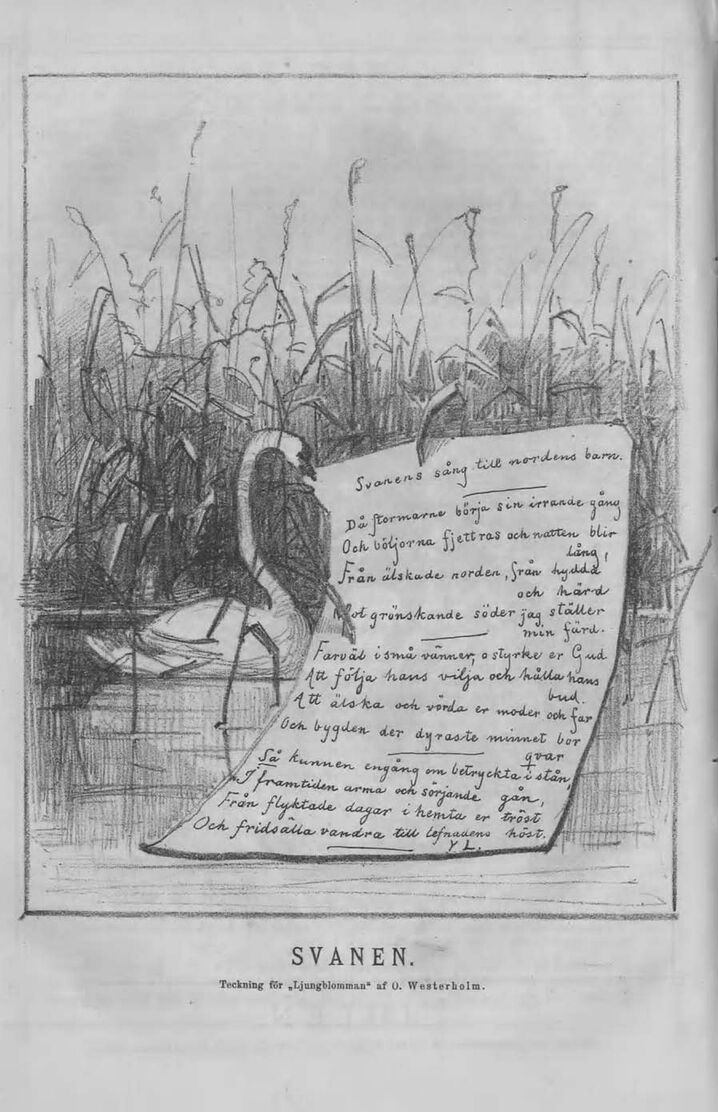 Svanens sång till nordens barn.
Då stormarne börja sin irrande gång
Och böljorna fjettras och natten blir
lång,
Från älskade norden, från hydda
och härd
Mot grönskande söder jag ställer
min färd.
Farväl i små vänner, o styrke er Gud
Att följa hans vilja och hålla hans
bud.
Att älska och vörda er moder och far
Och bygden der dyraste minnet bor
qvar
Så kunnen engång om betryckta i stån,
I framtiden arma och sörjande gån,
Från flyktade dagar i hemta er tröst
Och fridsälla vandra till lefnadens höst.
Y L.
SVANEN.
Teckning för „Ljungblomman“ af O. Westerholm.